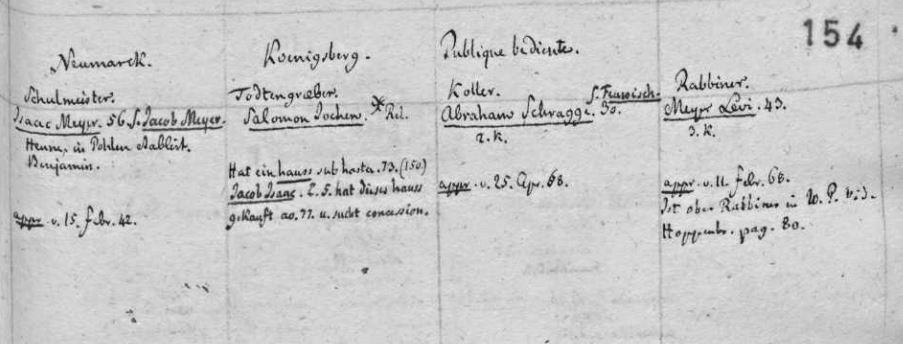 154
Neumarck. Koenigsberg. Publique bediente.
Schulmeister.
Isaac Meyer. 56. S. Jacob Meyer.
Henne, in Pohlen etablirt.
Benjamin.
appr v. 15. febr. 42.
Todtengræber.
Salomon Jochem. Rel.
Hat ein hauss sub hasta. 73. (150)
Jacob Isaac. 2. S. hat dieses hauss
gekauft ao. 77. u. sucht concession.
Koller.
Abraham Schragge. 30.
2. k.
appr. v. 25. Apr. 68.
Rabbiner.
Meyer Levi. 43.
3. k.
appr. v. 11. febr. 68.
Ist ober Rabbiner in W. P. vid.
pag. 80.